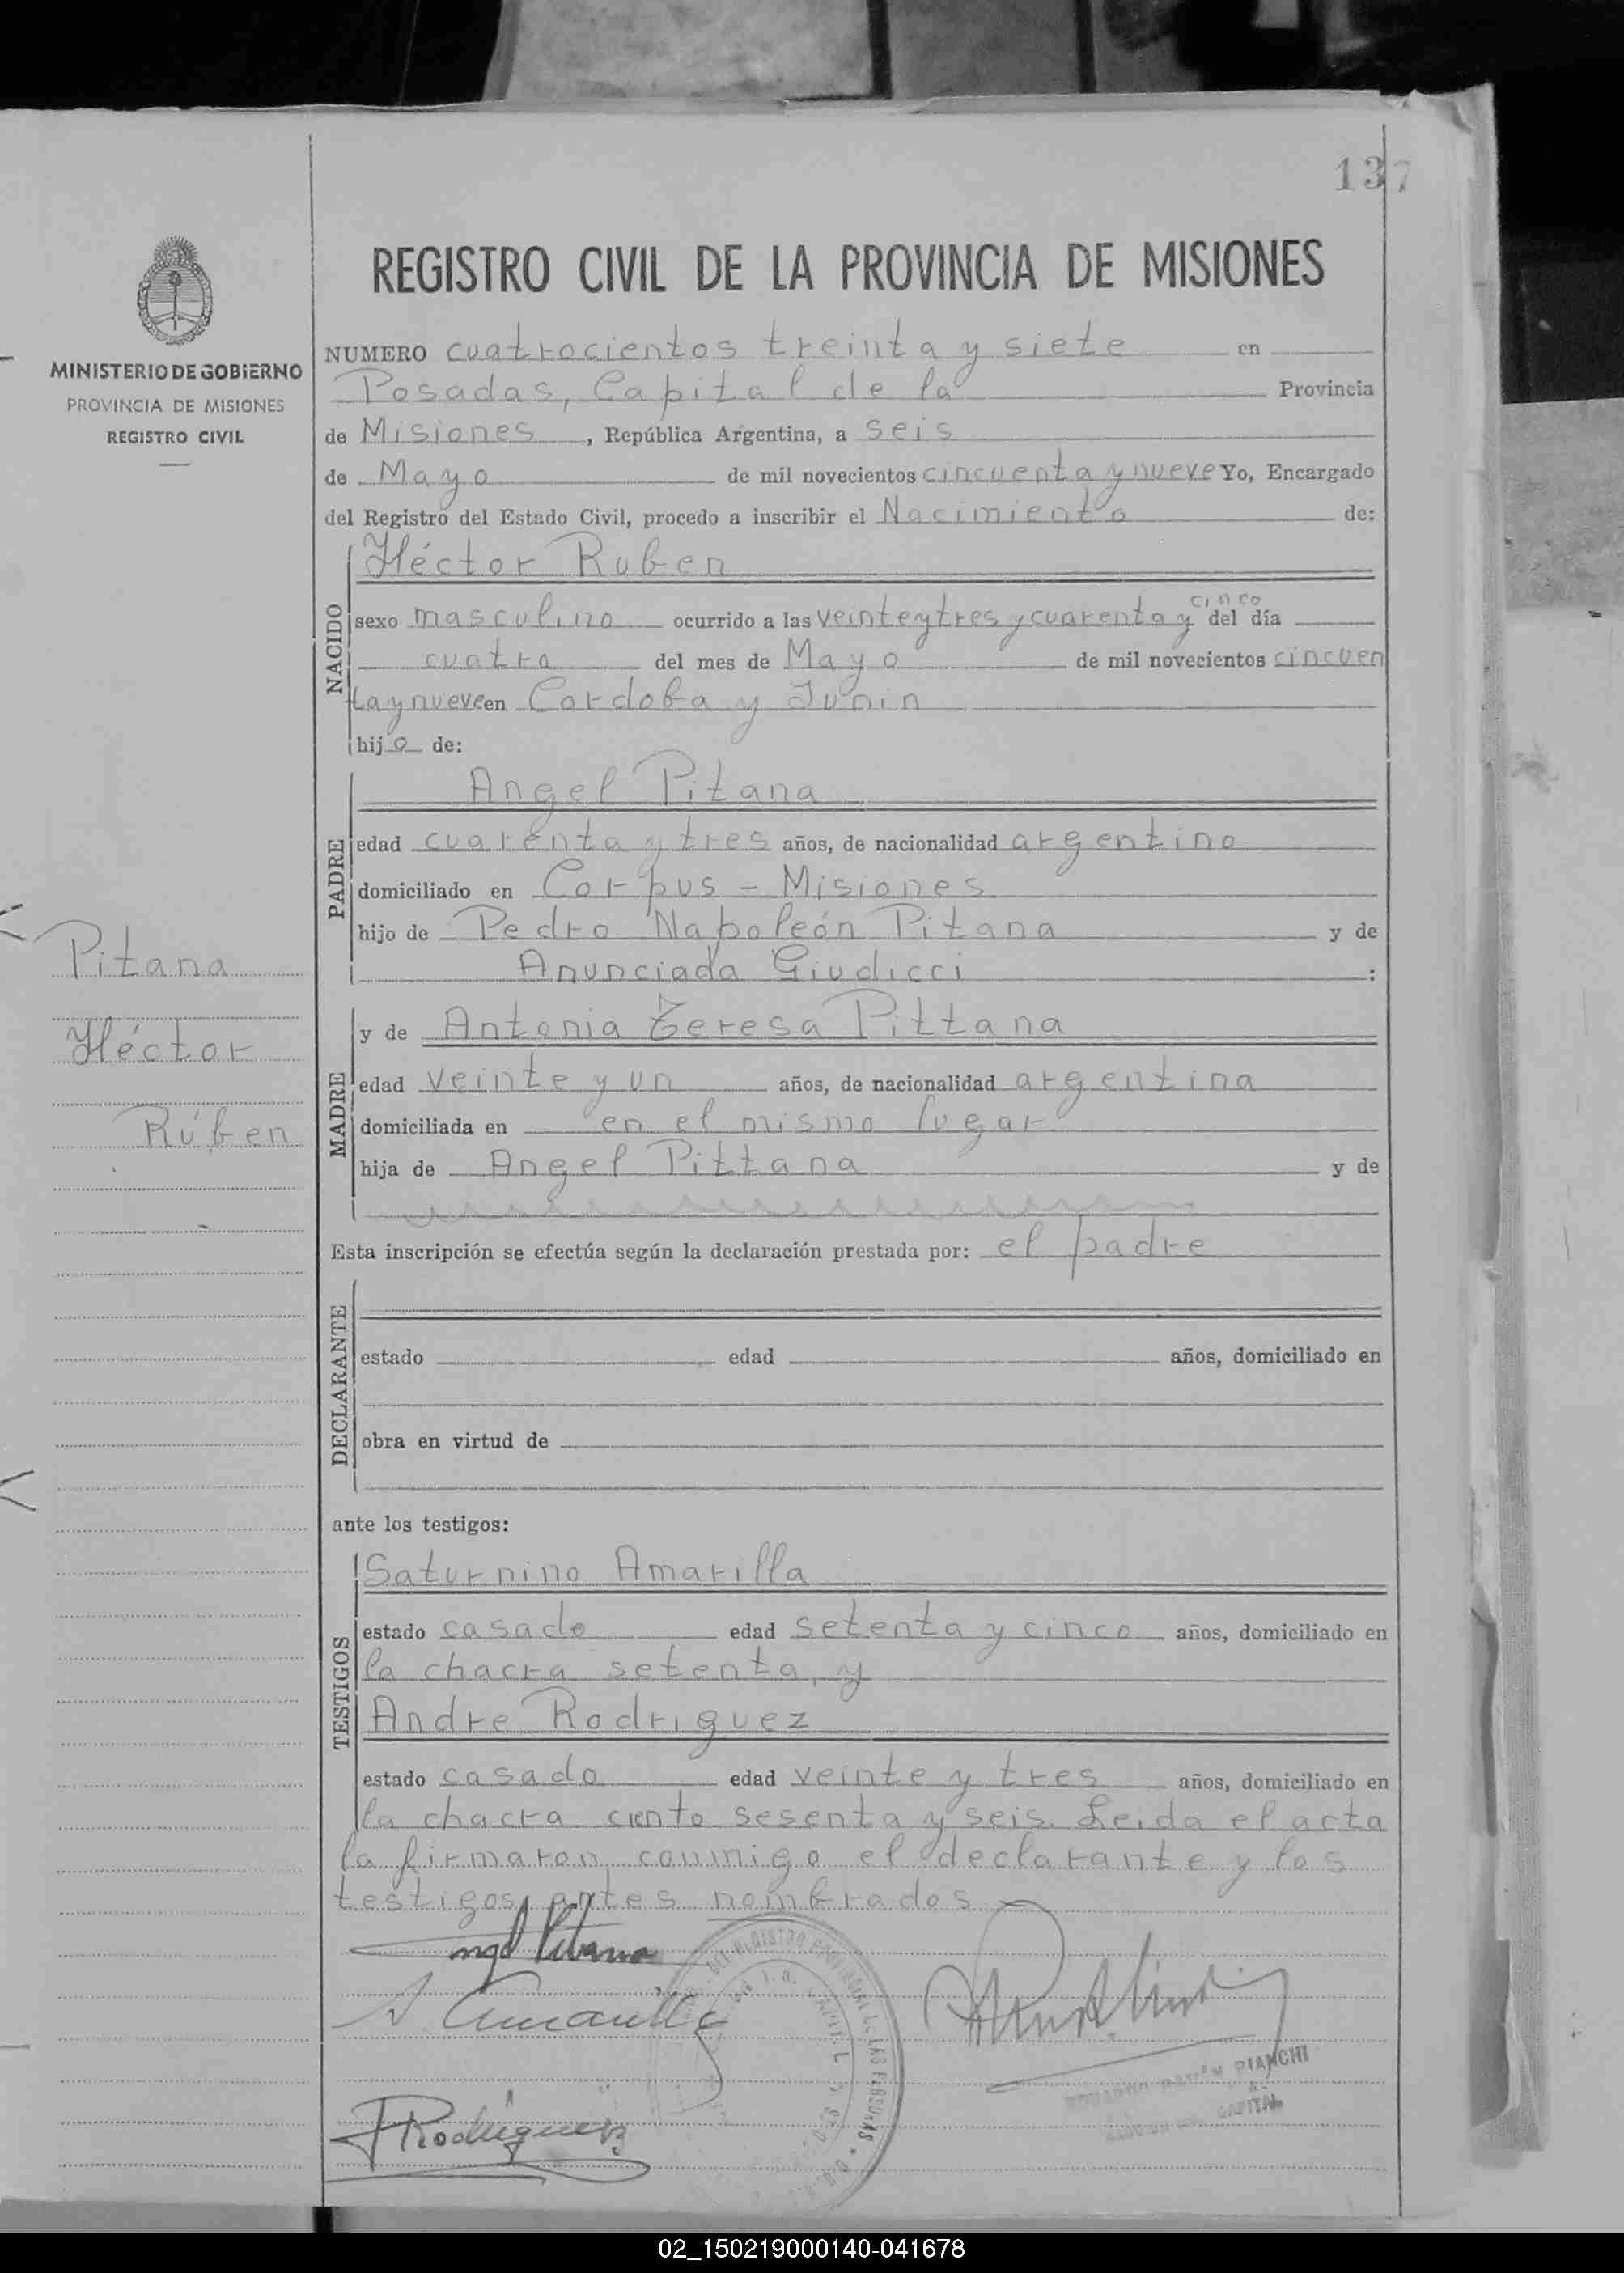 137
REGISTRO CIVIL DE LA PROVINCIA DE MISIONES
MINISTERIO DE GOBIERNO
PROVINCIA DE MISIONES
REGISTRO CIVIL
NUMERO cuatrocientos treinta y siete en
Posadas, Capital de la Provincia
de Misiones, República Argentina, a seis
de Mayo de mil novecientos cincuenta y nueve Yo, Encargado
del Registro del Estado Civil, procedo a inscribir el Nacimiento de:
NACIDO
Héctor Ruben
sexo masculino ocurrido a las veinte y tres y cuarenta y cinco del día
cuatro del mes de Mayo de mil novecientos cincuen
ta y nueve en Cordoba y Junin
hijo de:
PADRE
Angel Pitana
edad cuarenta y tres años, de nacionalidad argentino
domiciliado en Corpus - Misiones
hijo de Pedro Napoleón Pitana y de
Anunciada Giudicci :
Pitana
Héctor
Rúben
MADRE
y de Antonia Teresa Pittana
edad veinte y un años, de nacionalidad argentina
domiciliada en en el mismo lugar
hija de Angel Pittana y de
Esta inscripción se efectúa según la declaración prestada por: el padre
DECLARANTE
estado edad años, domiciliado en
obra en virtud de
ante los testigos:
TESTIGOS
Saturnino Amarilla
estado casado edad setenta y cinco años, domiciliado en
la chacra setenta, y
Andre Rodriguez
estado casado edad veinte y tres años, domiciliado en
la chacra ciento sesenta y seis. Leida el acta
la firmaron conmigo el declarante y los
testigos antes nombrados
Angel Pitana
S. Amarilla
A Rodriguez
PIANCHI
CAPITAL
02_150219000140-041678